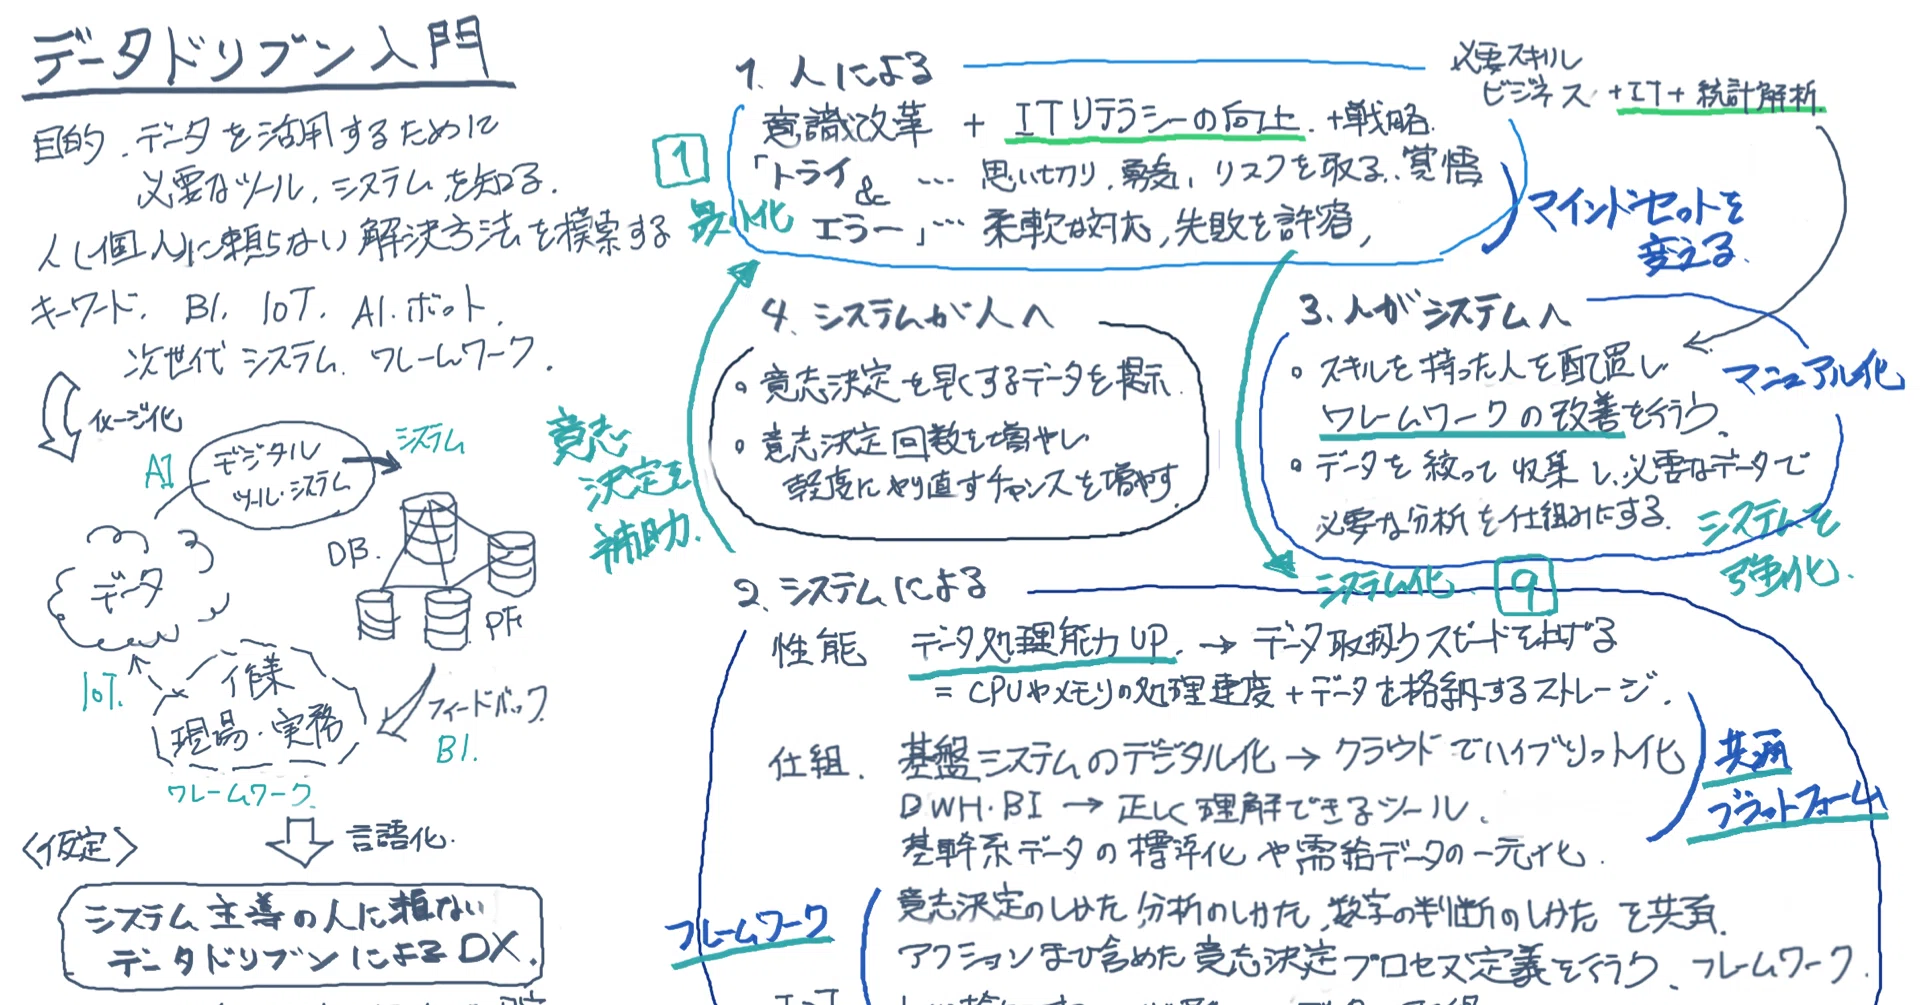 データドリブン入門
目的.データを活用するために
必要なツール,システムを知る.
人(個人)に頼らない解決方法を模索する
キーワード. BI. IoT. AI.ボット.
次世代システム.フレームワーク.
イメージ化
AI
デジタル
ツール・システム
システム
DB.
PF.
データ
IoT.
仕様
現場・実務
フレームワーク
フィードバック
BI.
〈仮定〉
言語化.
システム主導の人に頼ない
データドリブンによるDX.
1. 人による
必要スキル
ビジネス+IT+統計解析
意識改革 + ITリテラシーの向上.+戦略.
「トライ … 思い切り,勇気,リスクを取る.覚悟
&
エラー」… 柔軟な対応,失敗を許容,
1
最小化
マインドセットを
変える.
4. システムが人へ
・意志決定を早くするデータを掲示.
・意志決定回数を増やし
軽度にやり直すチャンスを増やす.
意志
決定を
補助.
3. 人がシステムへ
・スキルを持った人を配置し
フレームワークの改善を行う.
・データを絞って収集し,必要なデータで
必要な分析を仕組みにする.
マニュアル化
システムを
強化.
システム化 9
2. システムによる
性能 データ処理能力UP.→データ取扱うスピードを上げる
=CPUやメモリの処理速度+データを格納するストレージ.
仕組. 基盤システムのデジタル化→クラウドでハイブリット化
DWH・BI→正しく理解できるツール.
基幹系データの標準化や需給データの一元化.
共通
プラットフォーム
フレームワーク
意志決定のしかた,分析のしかた,数字の判断のしかたを共有.
アクションまで含めた意志決定プロセス定義を行う.フレームワーク.